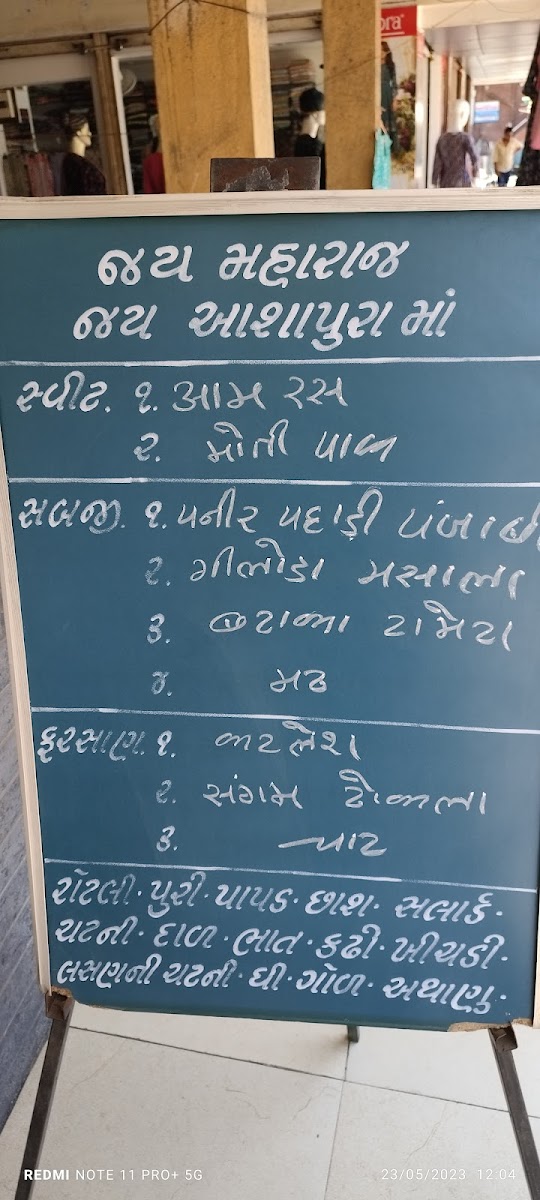 ora
જય મહારાજ
જય આશાપુરા માં
સ્વીટ. ૧. આમ રસ
૨. મોતી પાક
સબજી. ૧. પનીર પહાડી પંજાબી
૨. ગીલોડા મસાલા
૩. બટાકા ટામેટા
૪. મઠ
ફરસાણ. ૧. કટલેશ
૨. સંગમ ઢોકળા
૩. ચાટ
રોટલી · પુરી · પાપડ · છાશ · સલાડ ·
ચટની · દાળ · ભાત · કઢી · ખીચડી ·
લસણની ચટની · ઘી · ગોળ · અથાણુ ·
REDMI NOTE 11 PRO+ 5G
23/05/2023 12:04